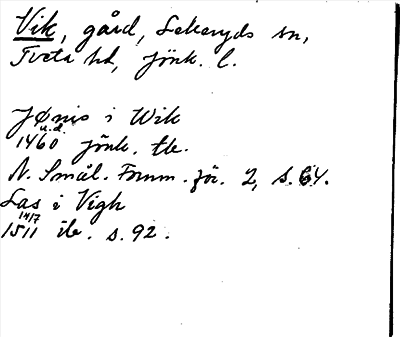 Vik, gård, Lekeryds sn,
Tveta hd, Jönk. l.
Jønis i Wik
1460 u.d. Jönk. tb.
N. Smål. Fornm. för. 2, s. 64.
Las i Vigh
1511 14/7 ib. s. 92.